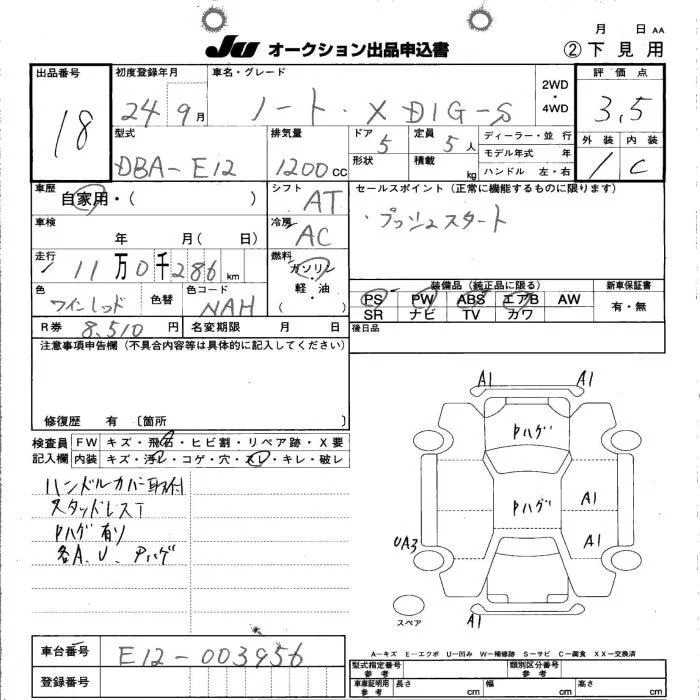 月 日 AA
JU オークション出品申込書 ②下見用
出品番号 18
初度登録年月 24年9月
車名・グレード ノート・X DIG-S
2WD・4WD
評価点 3,5
外装 内装
1 C
型式 DBA-E12
排気量 1200cc
ドア 5
形状
定員 5人
積載 kg
ディーラー・並行
モデル年式 年
ハンドル 左・右
車歴 自家用・( )
シフト AT
セールスポイント(正常に機能するものに限ります)
・プッシュスタート
車検 年 月( 日)
冷房 AC
走行 11万0千286km
燃料 ガソリン・軽油・( )
色 ワインレッド 色替
色コード NAH
装備品(純正品に限る)
PS PW ABS エアB AW
SR ナビ TV カワ
新車保証書
有・無
R券 8,510円 名変期限 月 日
後日品
注意事項申告欄(不具合内容等は具体的に記入してください)
修復歴 有 〔箇所 〕
検査員記入欄
FW キズ・飛石・ヒビ割・リペア跡・X要
内装 キズ・汚レ・コゲ・穴・スレ・キレ・破レ
ハンドルカバー取付
スタッドレスT
Pハゲ有り
各A、U、Pハゲ
A1 A1
Pハゲ
Pハゲ A1
UA3 A1
スペア A1
A-キズ E-エクボ U-凹み W-補修跡 S-サビ C-腐食 XX-交換済
車台番号 E12-003956
登録番号
型式指定番号 参考
類別区分番号 参考
車庫証明用 参考 長さ cm 幅 cm 高さ cm